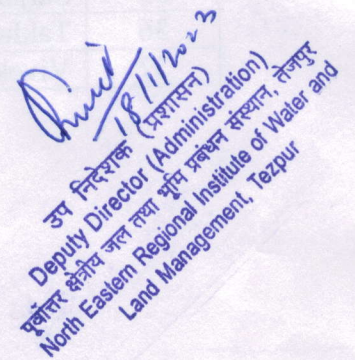 18/1/2023
उप निदेशक (प्रशासन)
Deputy Director (Administration)
पूर्वोत्तर क्षेत्रीय जल तथा भूमि प्रबंधन संस्थान, तेजपुर
North Eastern Regional Institute of Water and
Land Management, Tezpur